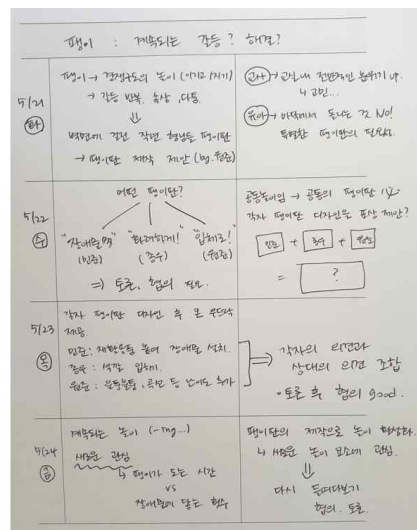 팽이 : 계속되는 갈등? 해결?
5/21
화
팽이 → 경쟁구도의 놀이 (이기고/지기)
→ 갈등 반복. 속상, 다툼
⇓
벽면에 걸린 작년 형님들 팽이판
→ 팽이판 제작 제안 (by. 원준)
교사 → 교실내 전반적인 분위기 up.
↳ 고민...
유아 → 바닥에서 돌리는 것 NO!
특별한 팽이판의 필요성.
5/22
수
어떤 팽이판?
"장애물" "화려하게!" "입체로!"
(민준) (준수) (원준)
⇒ 토론, 협의 필요.
공동놀이임 → 공동의 팽이판
각자 팽이판 디자인은 표상 제안?
민준 + 준수 + 원준
= ?
5/23
목
각자 팽이판 디자인 후 큰 우드락
제공.
민준: 재활용품 붙여 장애물 설치.
준수: 색깔 입히기.
원준: 울퉁불퉁, 곡선 등 난이도 추가
⇒ 각자의 의견과
상대의 의견 조합
• 토론 후 협의 good.
5/24
금
계속되는 놀이 (-ing...)
새로운 관심
↳ 팽이가 도는 시간
vs
장애물에 닿는 횟수
팽이판의 제작으로 놀이 활성화.
↳ 새로운 놀이 요소에 관심.
⇓
다시 들여다보기
협의. 토론.